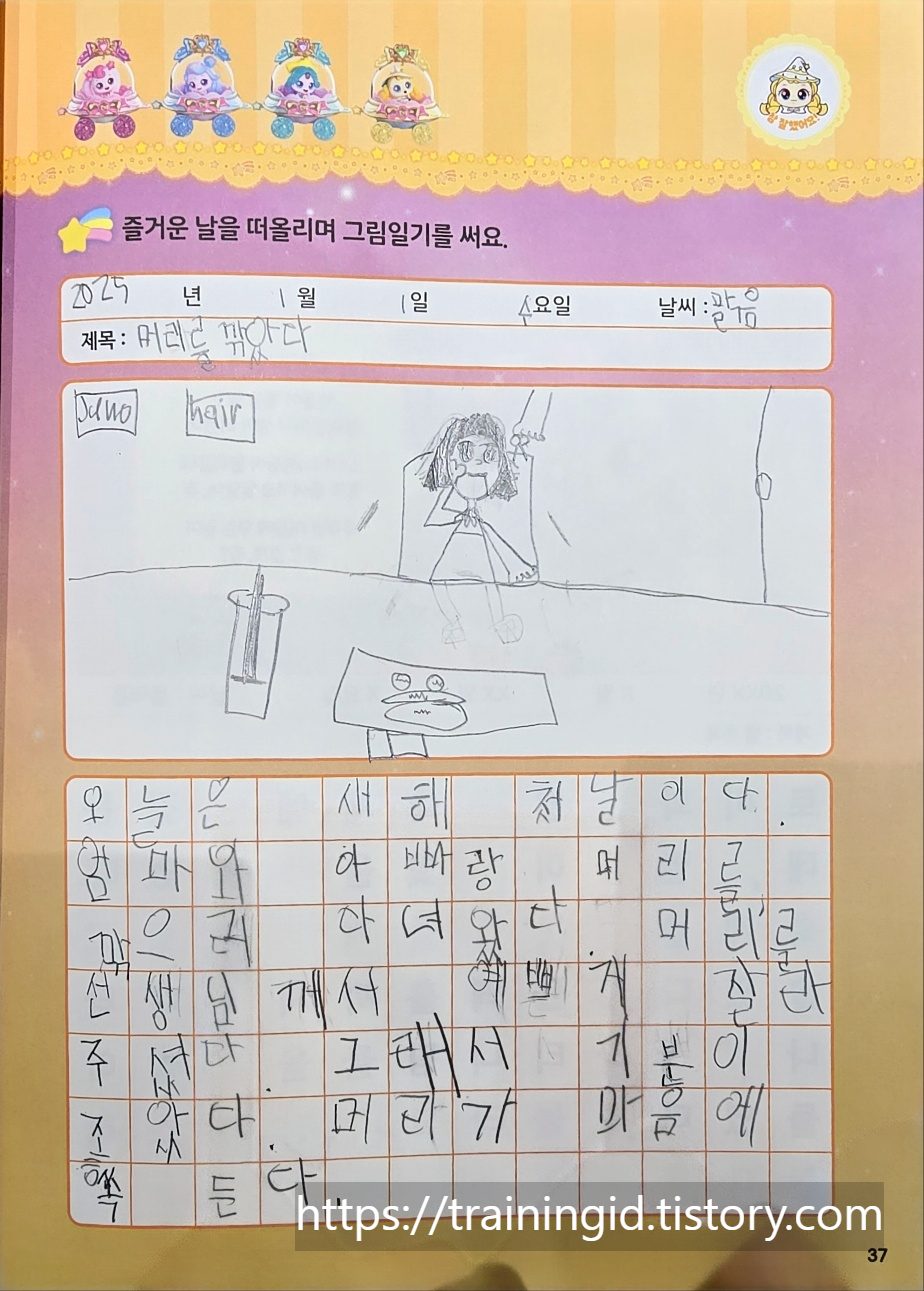 참 잘했어요!
즐거운 날을 떠올리며 그림일기를 써요.
2025 년 1 월 1 일 수요일 날씨 : 맑음
제목 : 머리를 깎았다
Juno hair
오늘은 새해 첫날이다.
엄마와 아빠랑 머리를
깎으러 다녀왔다. 머리를
선생님께서 예쁘게 잘라
주셨다. 그래서 기분이
조았다. 머리가 마음에
쏙 든다.
https://trainingid.tistory.com
37